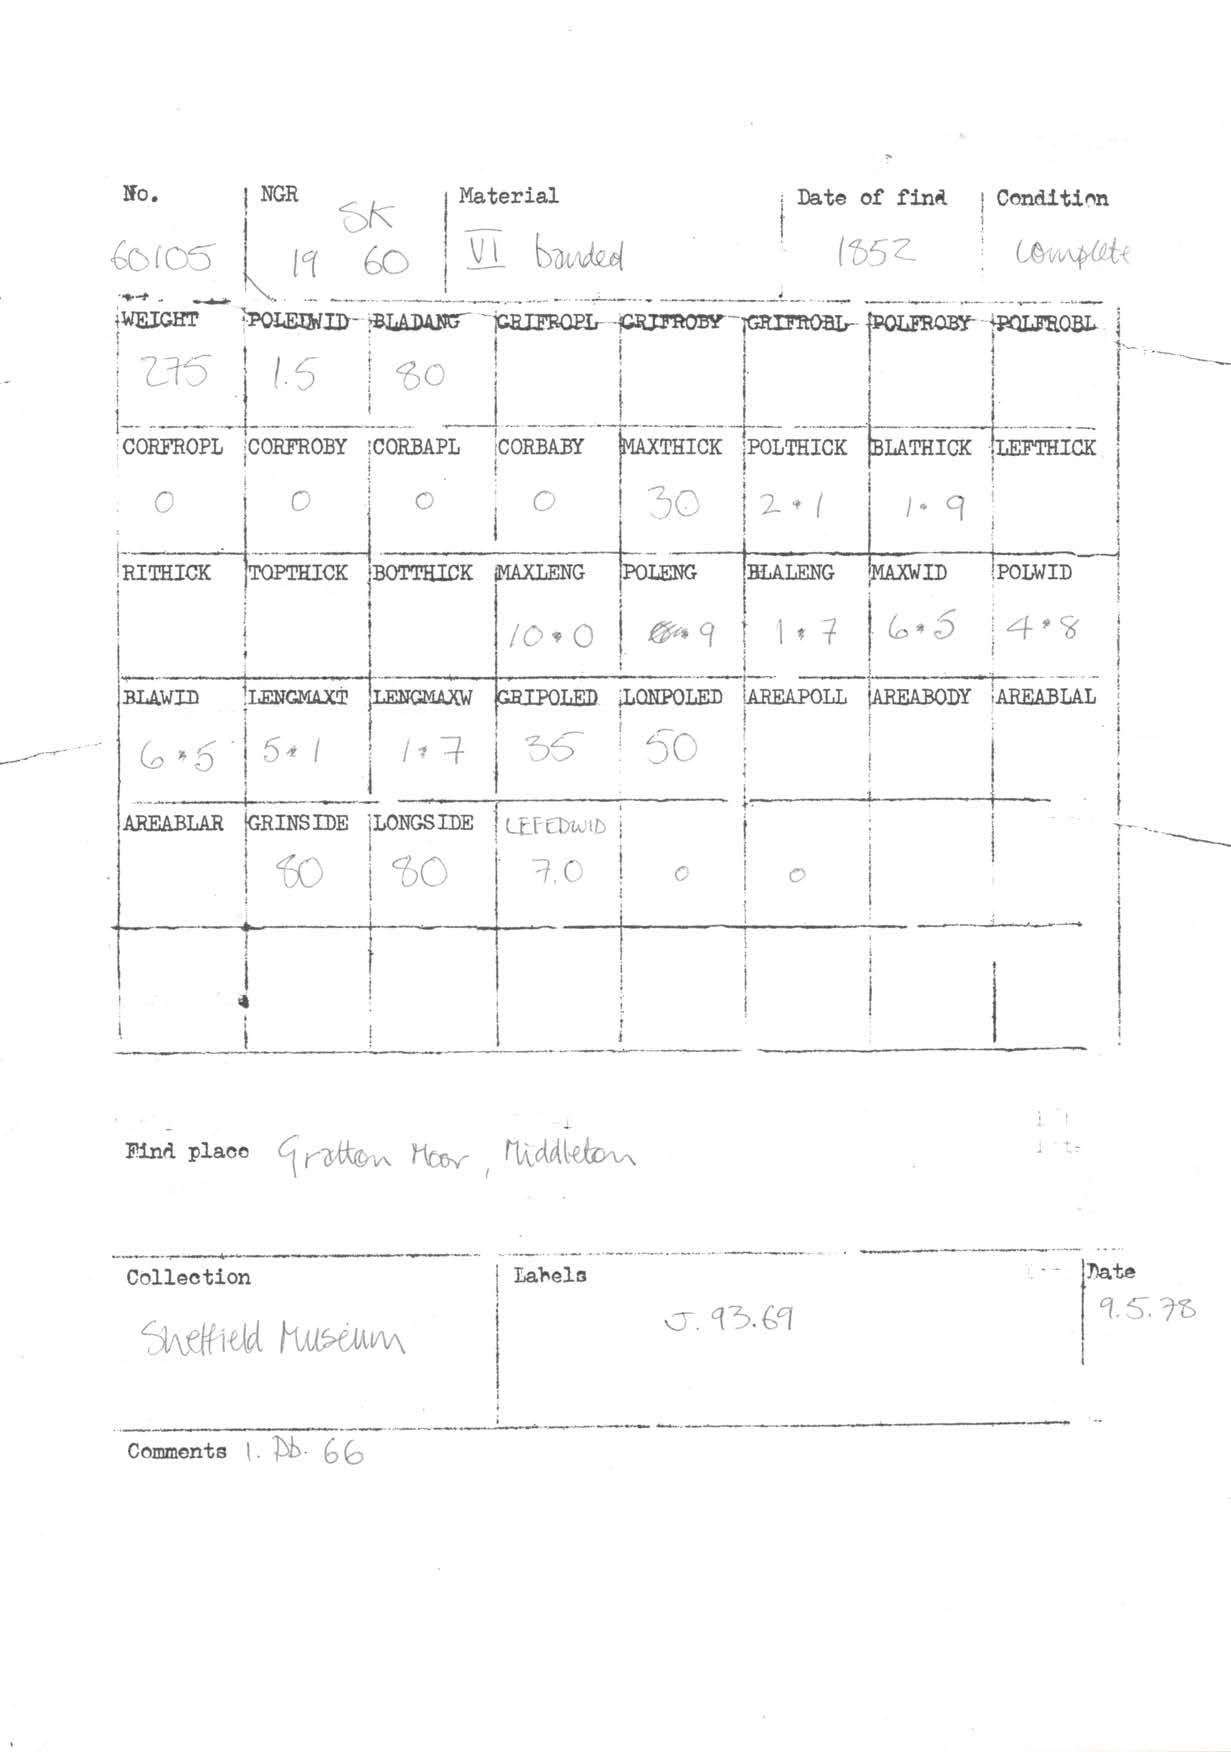 No. NGR Material Date of find Condition
SK
60105 19 60 VI banded 1852 complete
WEIGHT POLEDWID BLADANG GRIFROPL GRIFROBY GRIFROBL POLFROBY POLFROBL
275 1.5 80
CORFROPL CORFROBY CORBAPL CORBABY MAXTHICK POLTHICK BLATHICK LEFTHICK
0 0 0 0 30 2.1 1.9
RITHICK TOPTHICK BOTTHICK MAXLENG POLENG BLALENG MAXWID POLWID
10.0 .9 1.7 6.5 4.8
BLAWID LENGMAXT LENGMAXW GRIPOLED LONPOLED AREAPOLL AREABODY AREABLAL
6.5 5.1 1.7 35 50
AREABLAR GRINSIDE LONGSIDE LEFEDWID
80 80 7.0 0 0
Find place Gratton Moor, Middleton
Collection Labels Date
Sheffield Museum J.93.69 9.5.78
Comments 1. Db. 66